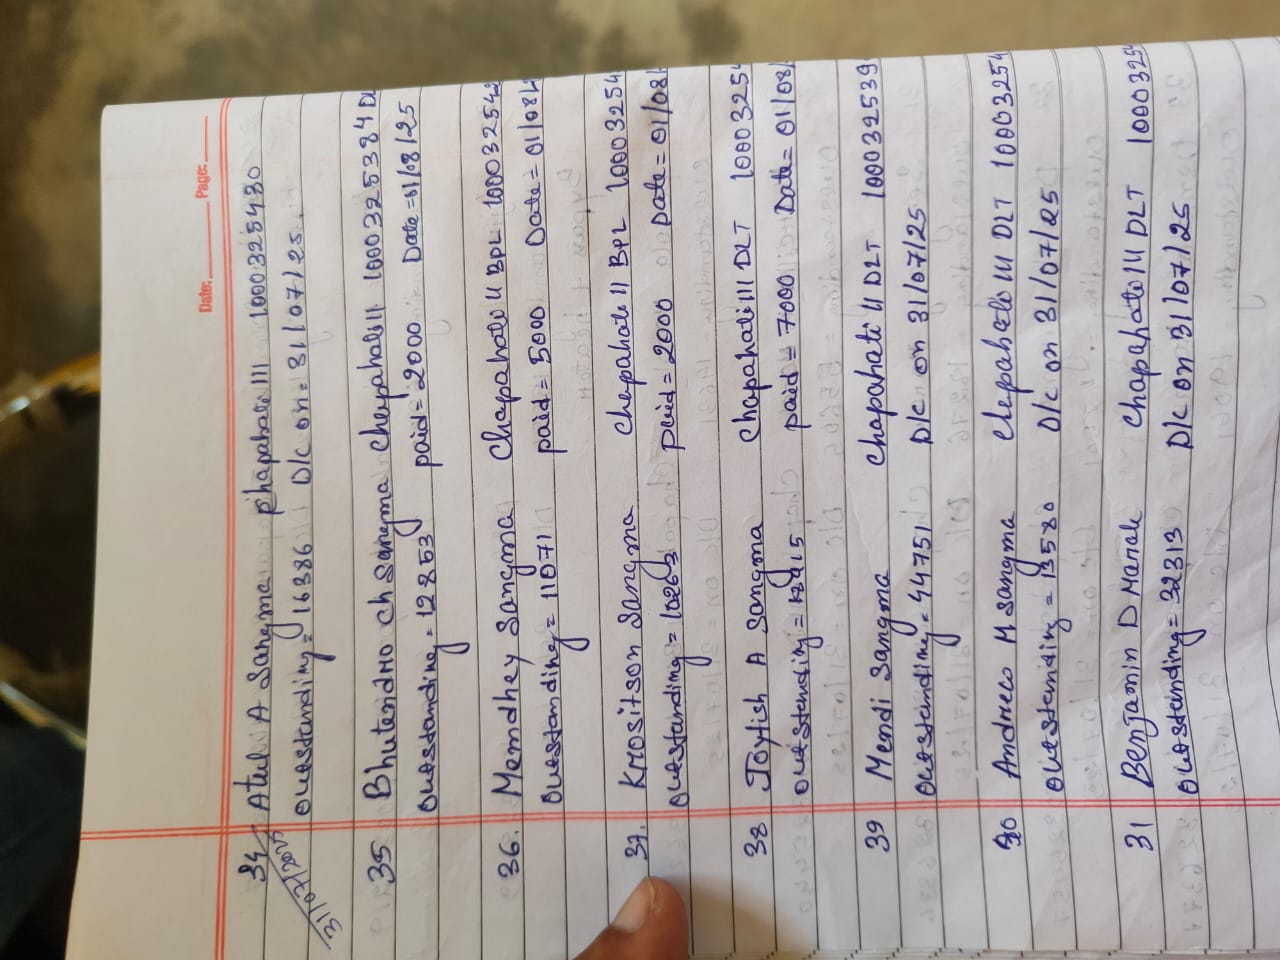 Date: Page:
34 Atul A Sangma Chapahati III 1000325480
31/07/2025 Outstanding = 16386 D/c on = 31/07/25.
35 Bhutendro Ch Sangma Chapahati II 1000325384 DL
Outstanding = 12853 paid = 2000 Date = 01/08/25
36. Memdhey Sangma Chapahati II BPL 10003254
Outstanding = 11071 paid = 5000 Date = 01/08/
37. Krositson Sangma Chapahati II BPL 10003254
Outstanding = 10263 paid = 2000 Date = 01/08/
38 Joylish A Sangma Chapahati III DLT 10003254
Outstanding = paid = 7000 Date = 01/08/
39 Mendi Sangma Chapahati II DLT 100032539
Outstanding = 44751 D/c on 31/07/25
Andrew M Sangma Chapahati III DLT 10003254
Outstanding = 13580 D/c on 31/07/25
31 Benjamin D Marak Chapahati III DLT 10003254
Outstanding = 32313 D/c on 31/07/25